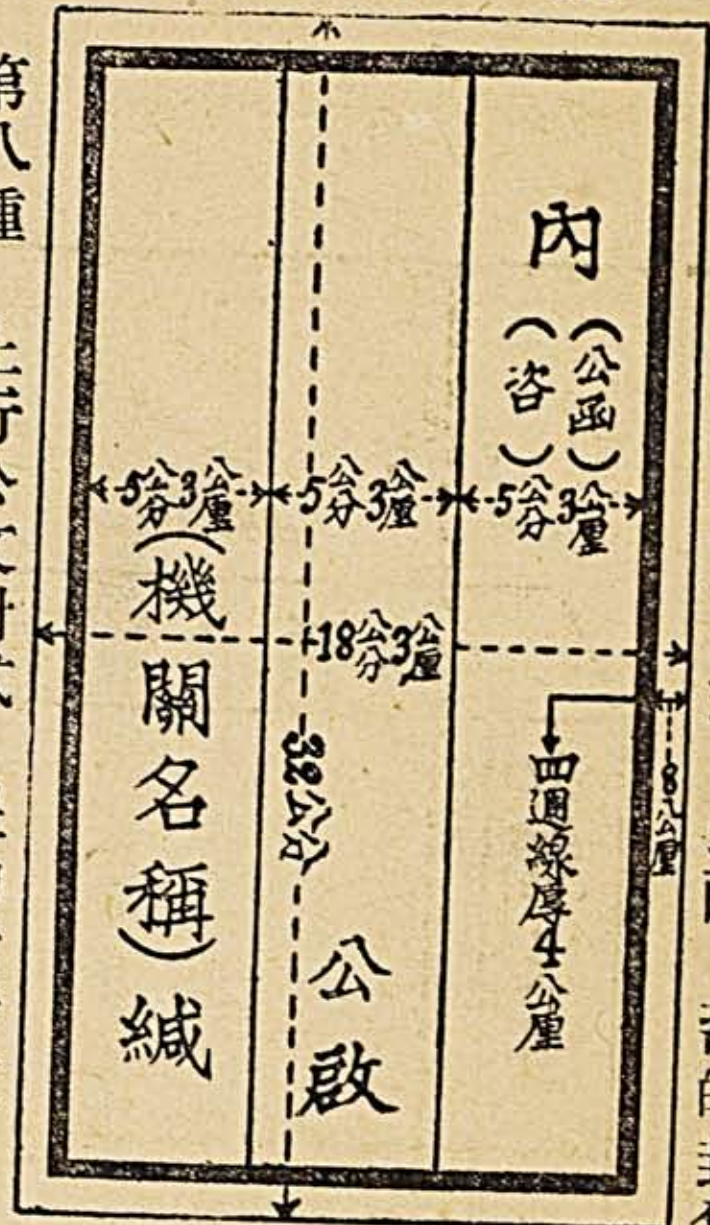 內（公函）
（咨）
5公分3公厘
5公分3公厘
5公分3公厘
18公分3公厘
8公厘
四週線厚4公厘
32公分
公啟
（機關名稱）緘
第八種